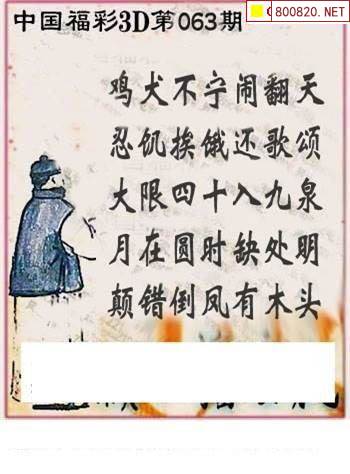 800820.NET
中国福彩3D第063期
鸡犬不宁闹翻天
忍饥挨饿还歌颂
大限四十入九泉
月在圆时缺处明
颠错倒凤有木头